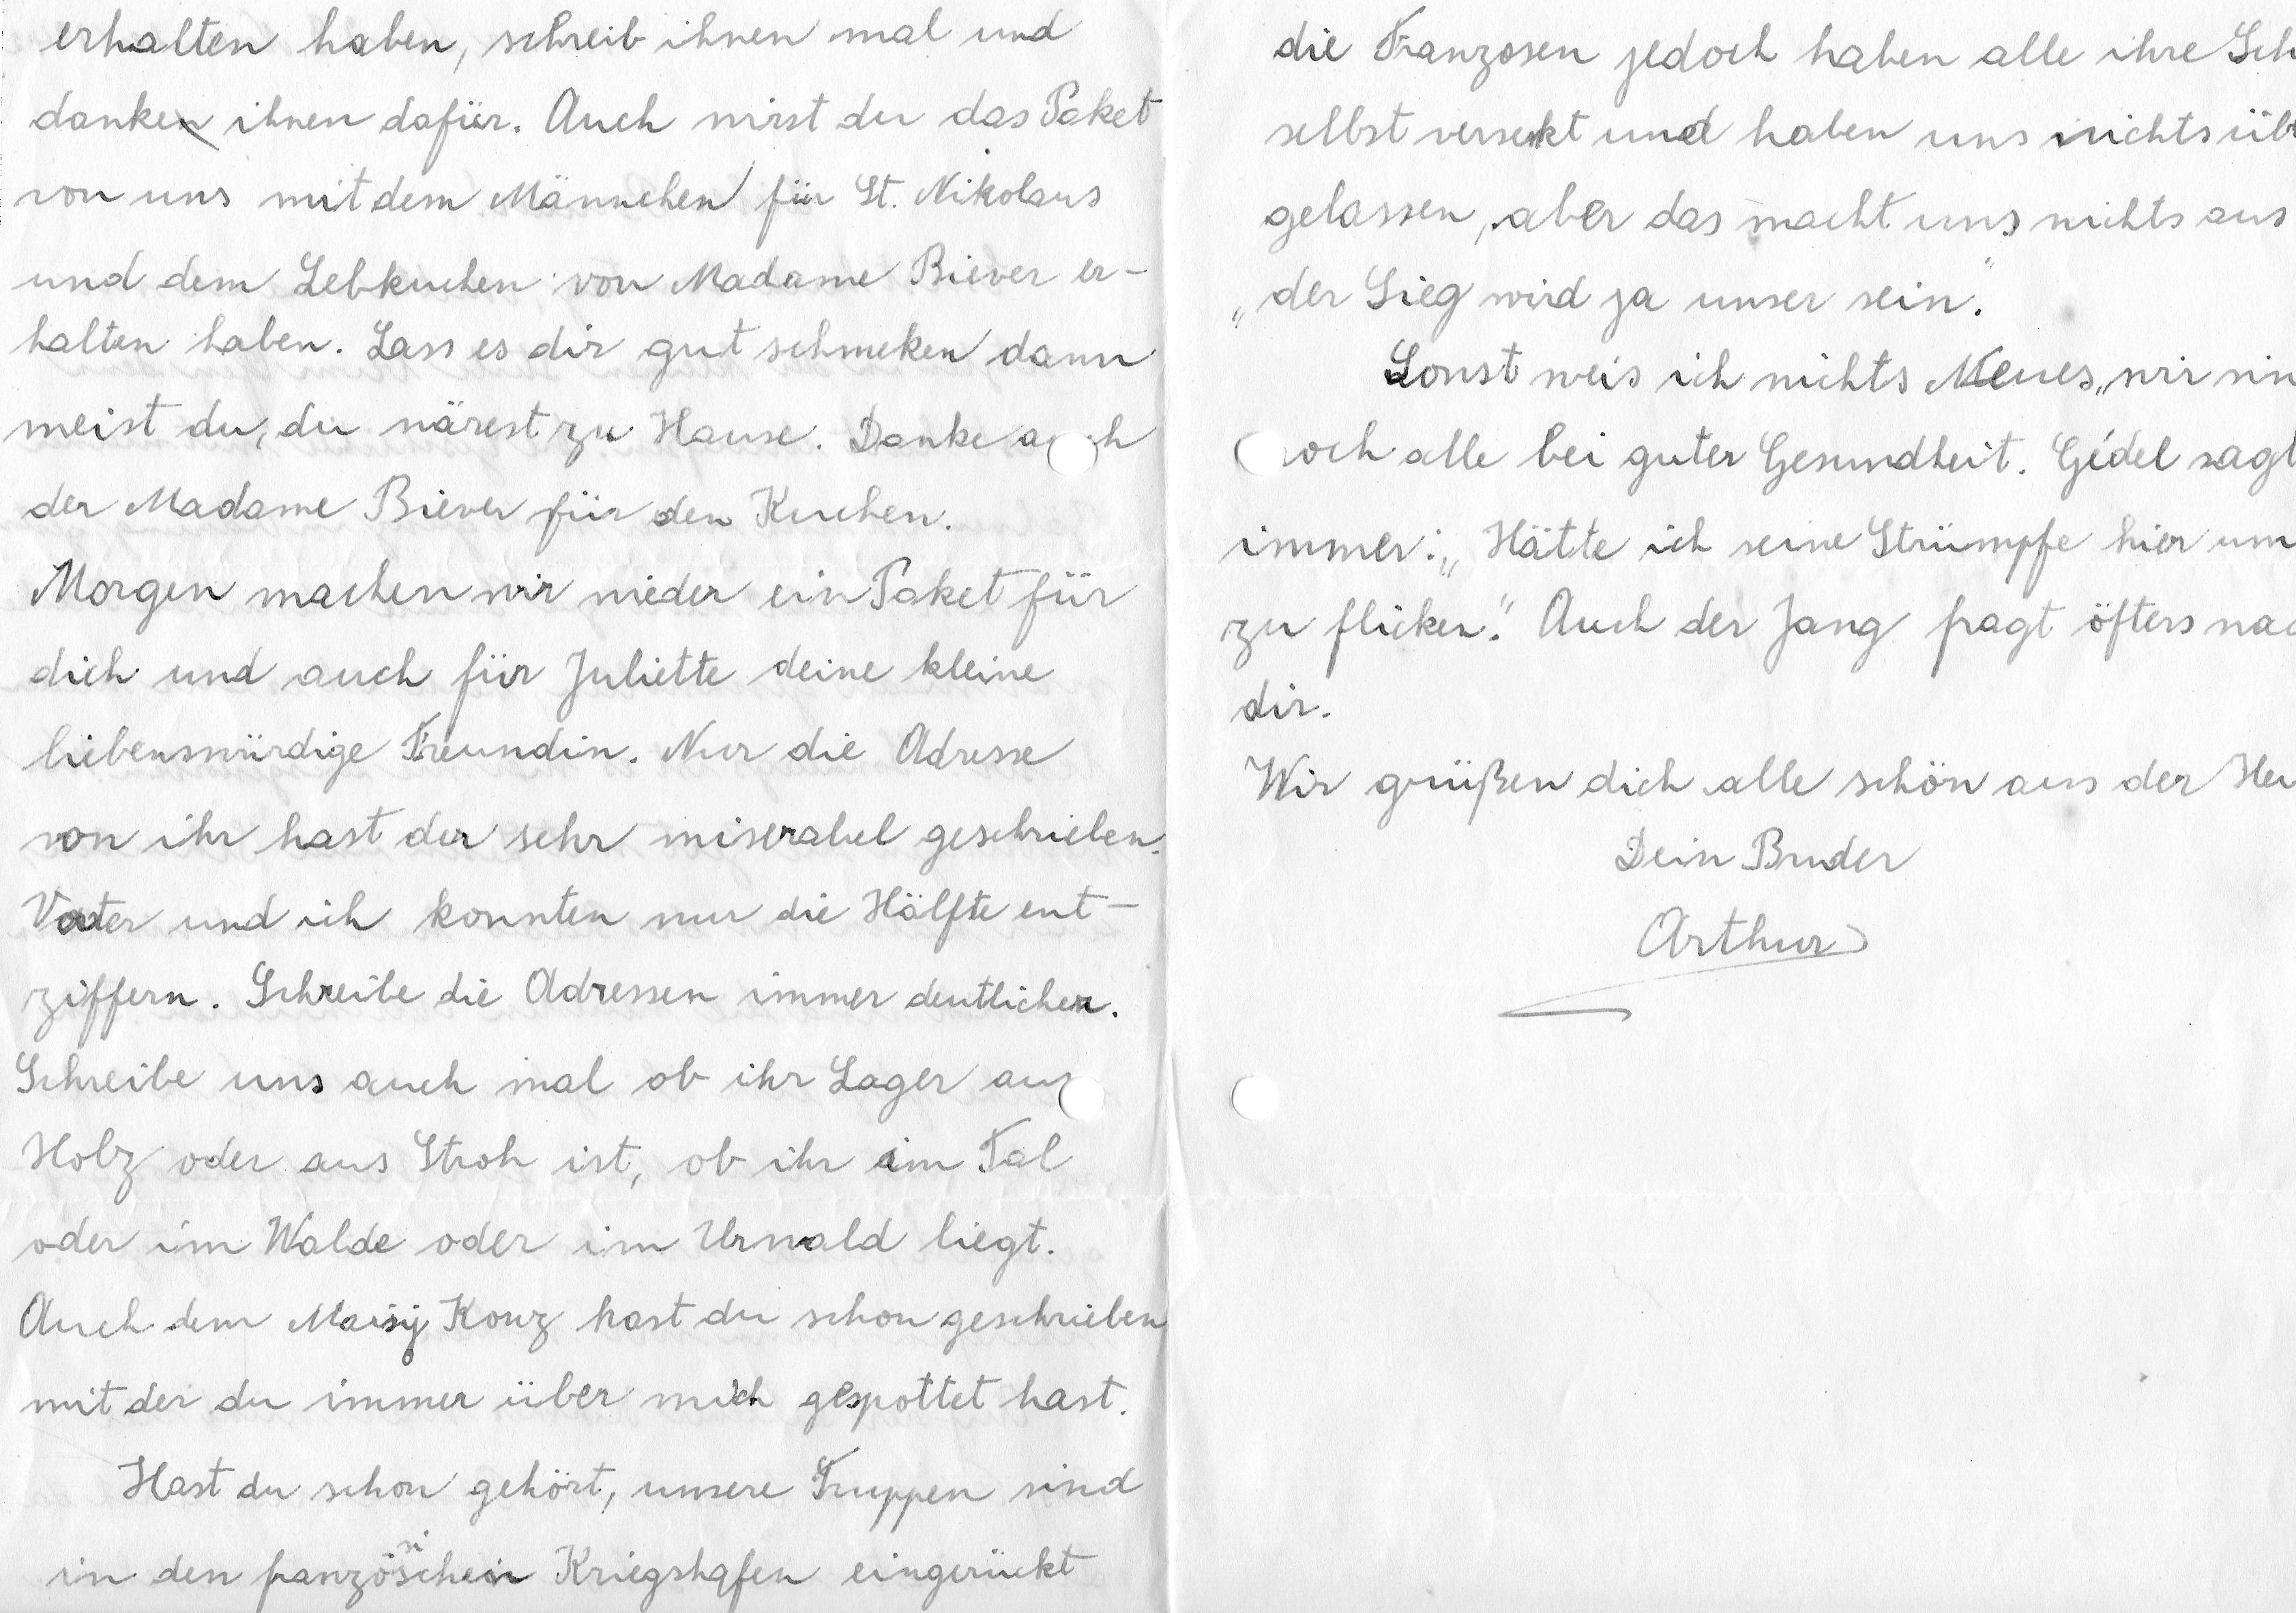 erhalten haben, schreib ihnen mal und
danken ihnen dafür. Auch wirst du das Paket
von uns mit dem Männchen für St. Nikolaus
und dem Lebkuchen von Madame Biever er-
halten haben. Lass es dir gut schmeken dann
meist du, du wärest zu Hause. Danke auch
der Madame Biever für den Kuchen.
Morgen machen wir wieder ein Paket für
dich und auch für Juliette deine kleine
liebenswürdige Freundin. Nur die Adresse
von ihr hast du sehr miserabel geschrieben.
Vater und ich konnten nur die Hälfte ent-
ziffern. Schreibe die Adressen immer deutlicher.
Schreibe uns auch mal ob ihr Lager aus
Holz oder aus Stroh ist, ob ihr im Tal
oder im Walde oder im Urwald liegt.
Auch dem Maisy Konz hast du schon geschrieben
mit der du immer über mich gespottet hast.
Hast du schon gehört, unsere Truppen sind
in den französischen Kriegshafen eingerückt
die Franzosen jedoch haben alle ihre Sch
selbst versenkt und haben uns nichts üb
gelassen, aber das macht uns nichts aus
„der Sieg wird ja unser sein."
Sonst weis ich nichts Neues, wir sin
noch alle bei guter Gesundheit. Gédel sagt
immer: „Hätte ich seine Strümpfe hier um
zu flicken." Auch der Jang fragt öfters nac
dir.
Wir grüßen dich alle schön aus der Hei
Dein Bruder
Arthur